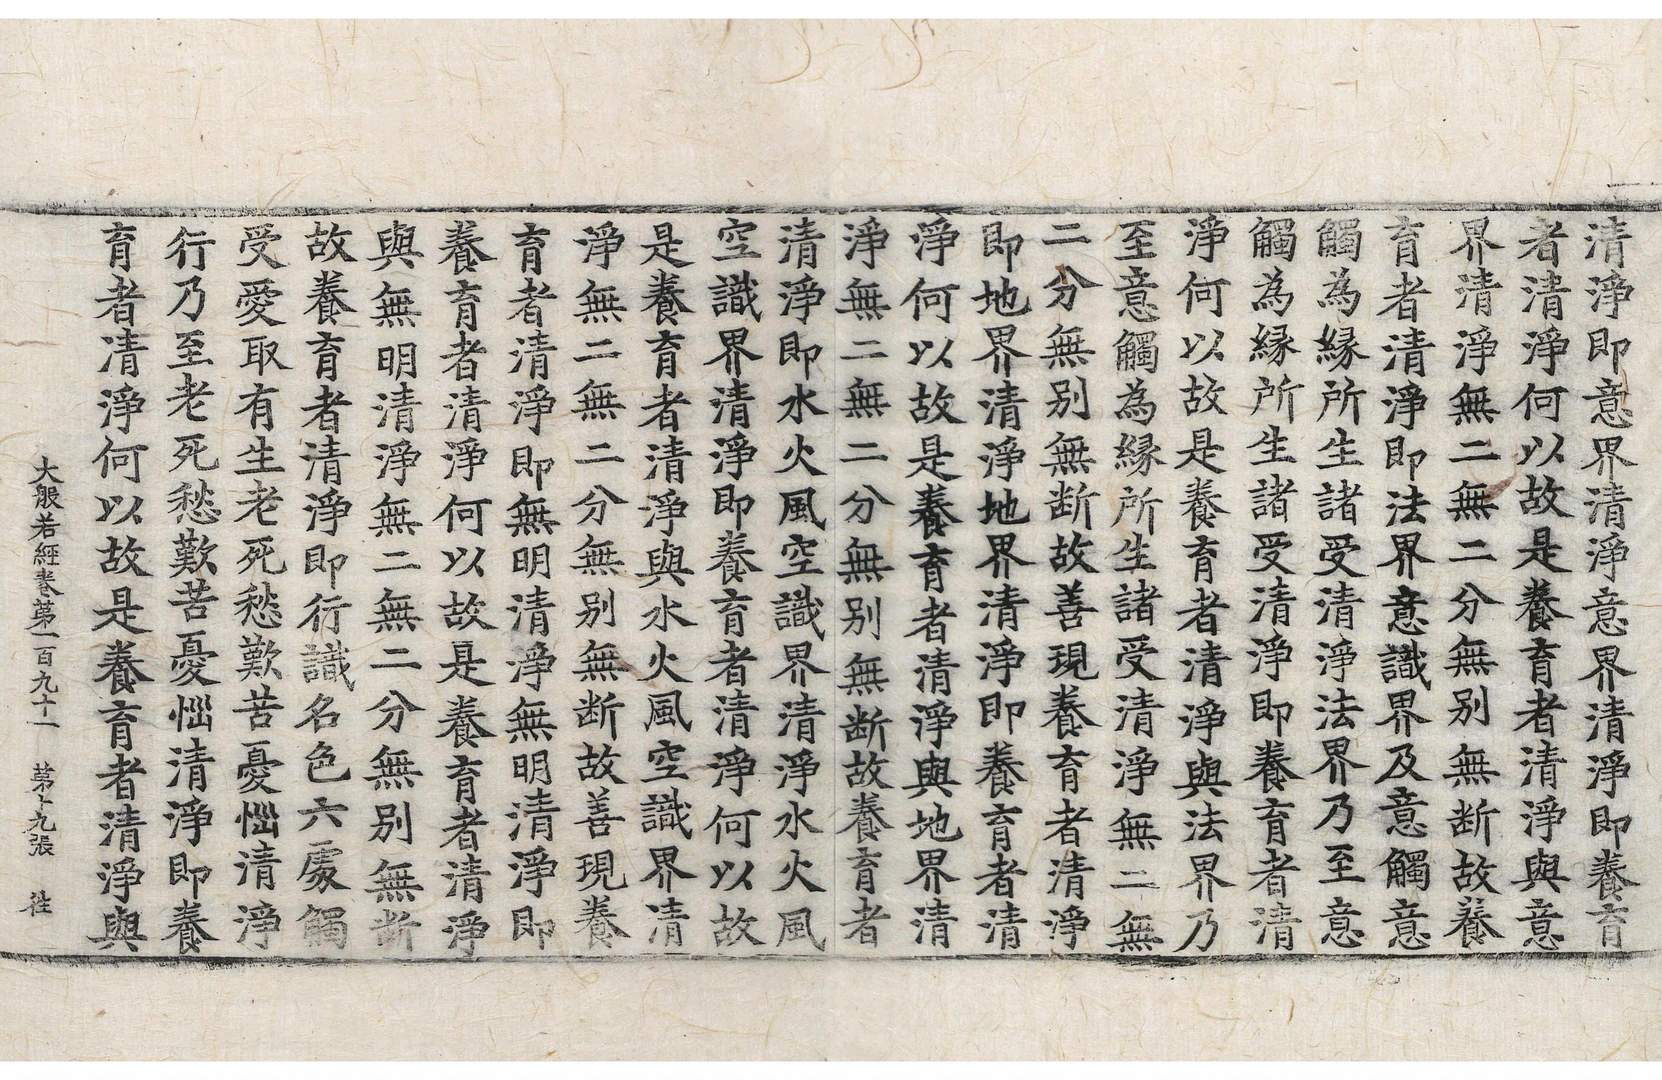 清淨即意界清淨意界清淨即養育
者清淨何以故是養育者清淨與意
界清淨無二無二分無别無断故養
育者清淨即法界意識界及意觸意
觸為縁所生諸受清淨法界乃至意
觸為縁所生諸受清淨即養育者清
淨何以故是養育者清淨與法界乃
至意觸為縁所生諸受清淨無二無
二分無别無断故善現養育者清淨
即地界清淨地界清淨即養育者清
淨何以故是養育者清淨與地界清
淨無二無二分無别無断故養育者
清淨即水火風空識界清淨水火風
空識界清淨即養育者清淨何以故
是養育者清淨與水火風空識界清
淨無二無二分無别無断故善現養
育者清淨即無明清淨無明清淨即
養育者清淨何以故是養育者清淨
與無明清淨無二無二分無别無断
故養育者清淨即行識名色六處觸
受愛取有生老死愁歎苦憂惱清淨
行乃至老死愁歎苦憂惱清淨即養
育者清淨何以故是養育者清淨與
大般若經卷第一百九十一 第十九張 往